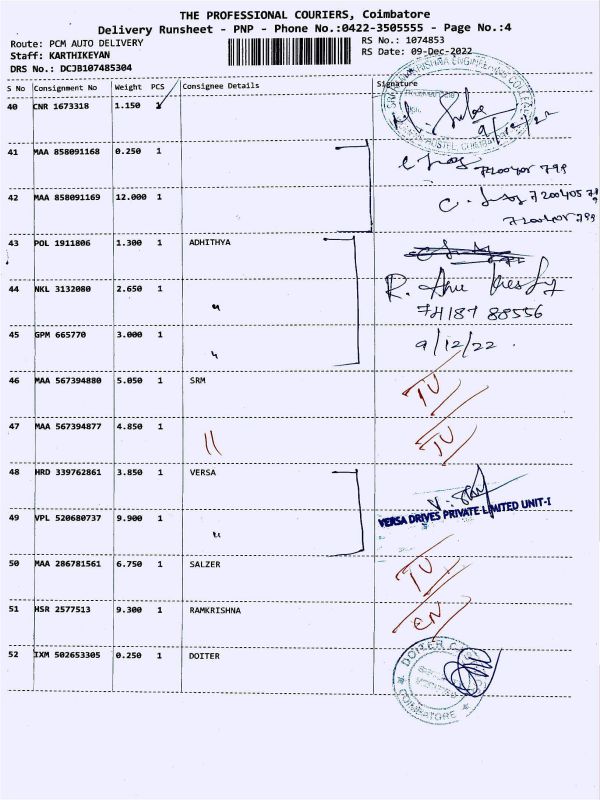 THE PROFESSIONAL COURIERS, Coimbatore
Delivery Runsheet - PNP - Phone No.:0422-3505555 - Page No.:4
Route: PCM AUTO DELIVERY
Staff: KARTHIKEYAN
DRS No.: DCJB107485304
RS No.: 1074853
RS Date: 09-Dec-2022
S No Consignment No Weight PCS Consignee Details Signature
40 CNR 1673318 1.150 1
9/12/22
41 MAA 858091168 0.250 1
7200405 799
42 MAA 858091169 12.000 1
7200405 799
43 POL 1911806 1.300 1 ADHITHYA
44 NKL 3132080 2.650 1 "
74187 88556
45 GPM 665770 3.000 1 " 9/12/22.
46 MAA 567394880 5.050 1 SRM
47 MAA 567394877 4.850 1 "
48 HRD 339762861 3.850 1 VERSA
VERSA DRIVES PRIVATE LIMITED UNIT-I
49 VPL 520680737 9.900 1 "
50 MAA 286781561 6.750 1 SALZER
51 HSR 2577513 9.300 1 RAMKRISHNA
52 IXM 502653305 0.250 1 DOITER
COIMBATORE